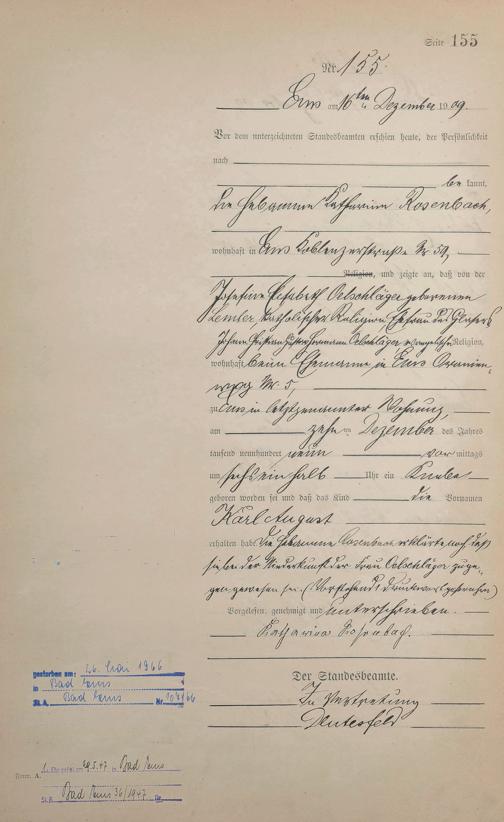 Seite 155
Nr. 155.
Ems am 16ten Dezember 1909.
Vor dem unterzeichneten Standesbeamten erschien heute, der Persönlichkeit
nach
bekannt,
die Hebamme Katharina Rosenbach,
wohnhaft in Ems Koblenzerstraße Nr. 59,
Religion, und zeigte an, daß von der
Josefine Elisabeth Oelschläger geborenen
katholischer Religion, Ehefrau des Glasers
Johann Hermann Oelschläger, evangelischer Religion,
wohnhaft beim Ehemanne in Ems Oranien-
weg Nr. 5,
zu Ems in letztgenannter Wohnung,
am zehnten Dezember des Jahres
tausend neunhundert neun vormittags
um sechs einhalb Uhr ein Knabe
geboren worden sei und daß das Kind die Vornamen
Karl August
erhalten habe. Die Hebamme Rosenbach erklärte noch, daß
sie bei der Niederkunft der Frau Oelschläger zuge-
gen gewesen sei. (Vorstehend 1 Druckwort gestrichen)
Vorgelesen, genehmigt und unterschrieben.
Katharina Rosenbach.
Der Standesbeamte.
In Vertretung
gestorben am: 26. Mai 1966
in Bad Ems
St.A. Bad Ems Nr. 107/66
1. am 29.5.47 in Bad Ems
St.A. Bad Ems 36/1947 Nr.